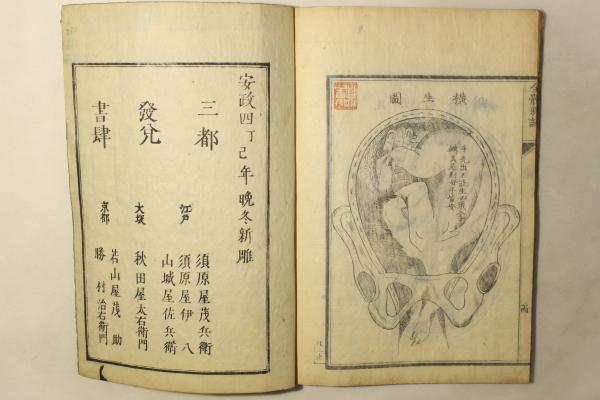 安政四丁巳年晩冬新雕
三都
發兌
書肆
江戸
須原屋茂兵衛
須原屋伊八
山城屋佐兵衛
大坂
秋田屋太右衛門
京都
若山屋茂助
勝村治右衛門
橫生圖
手先出不能生必須入手